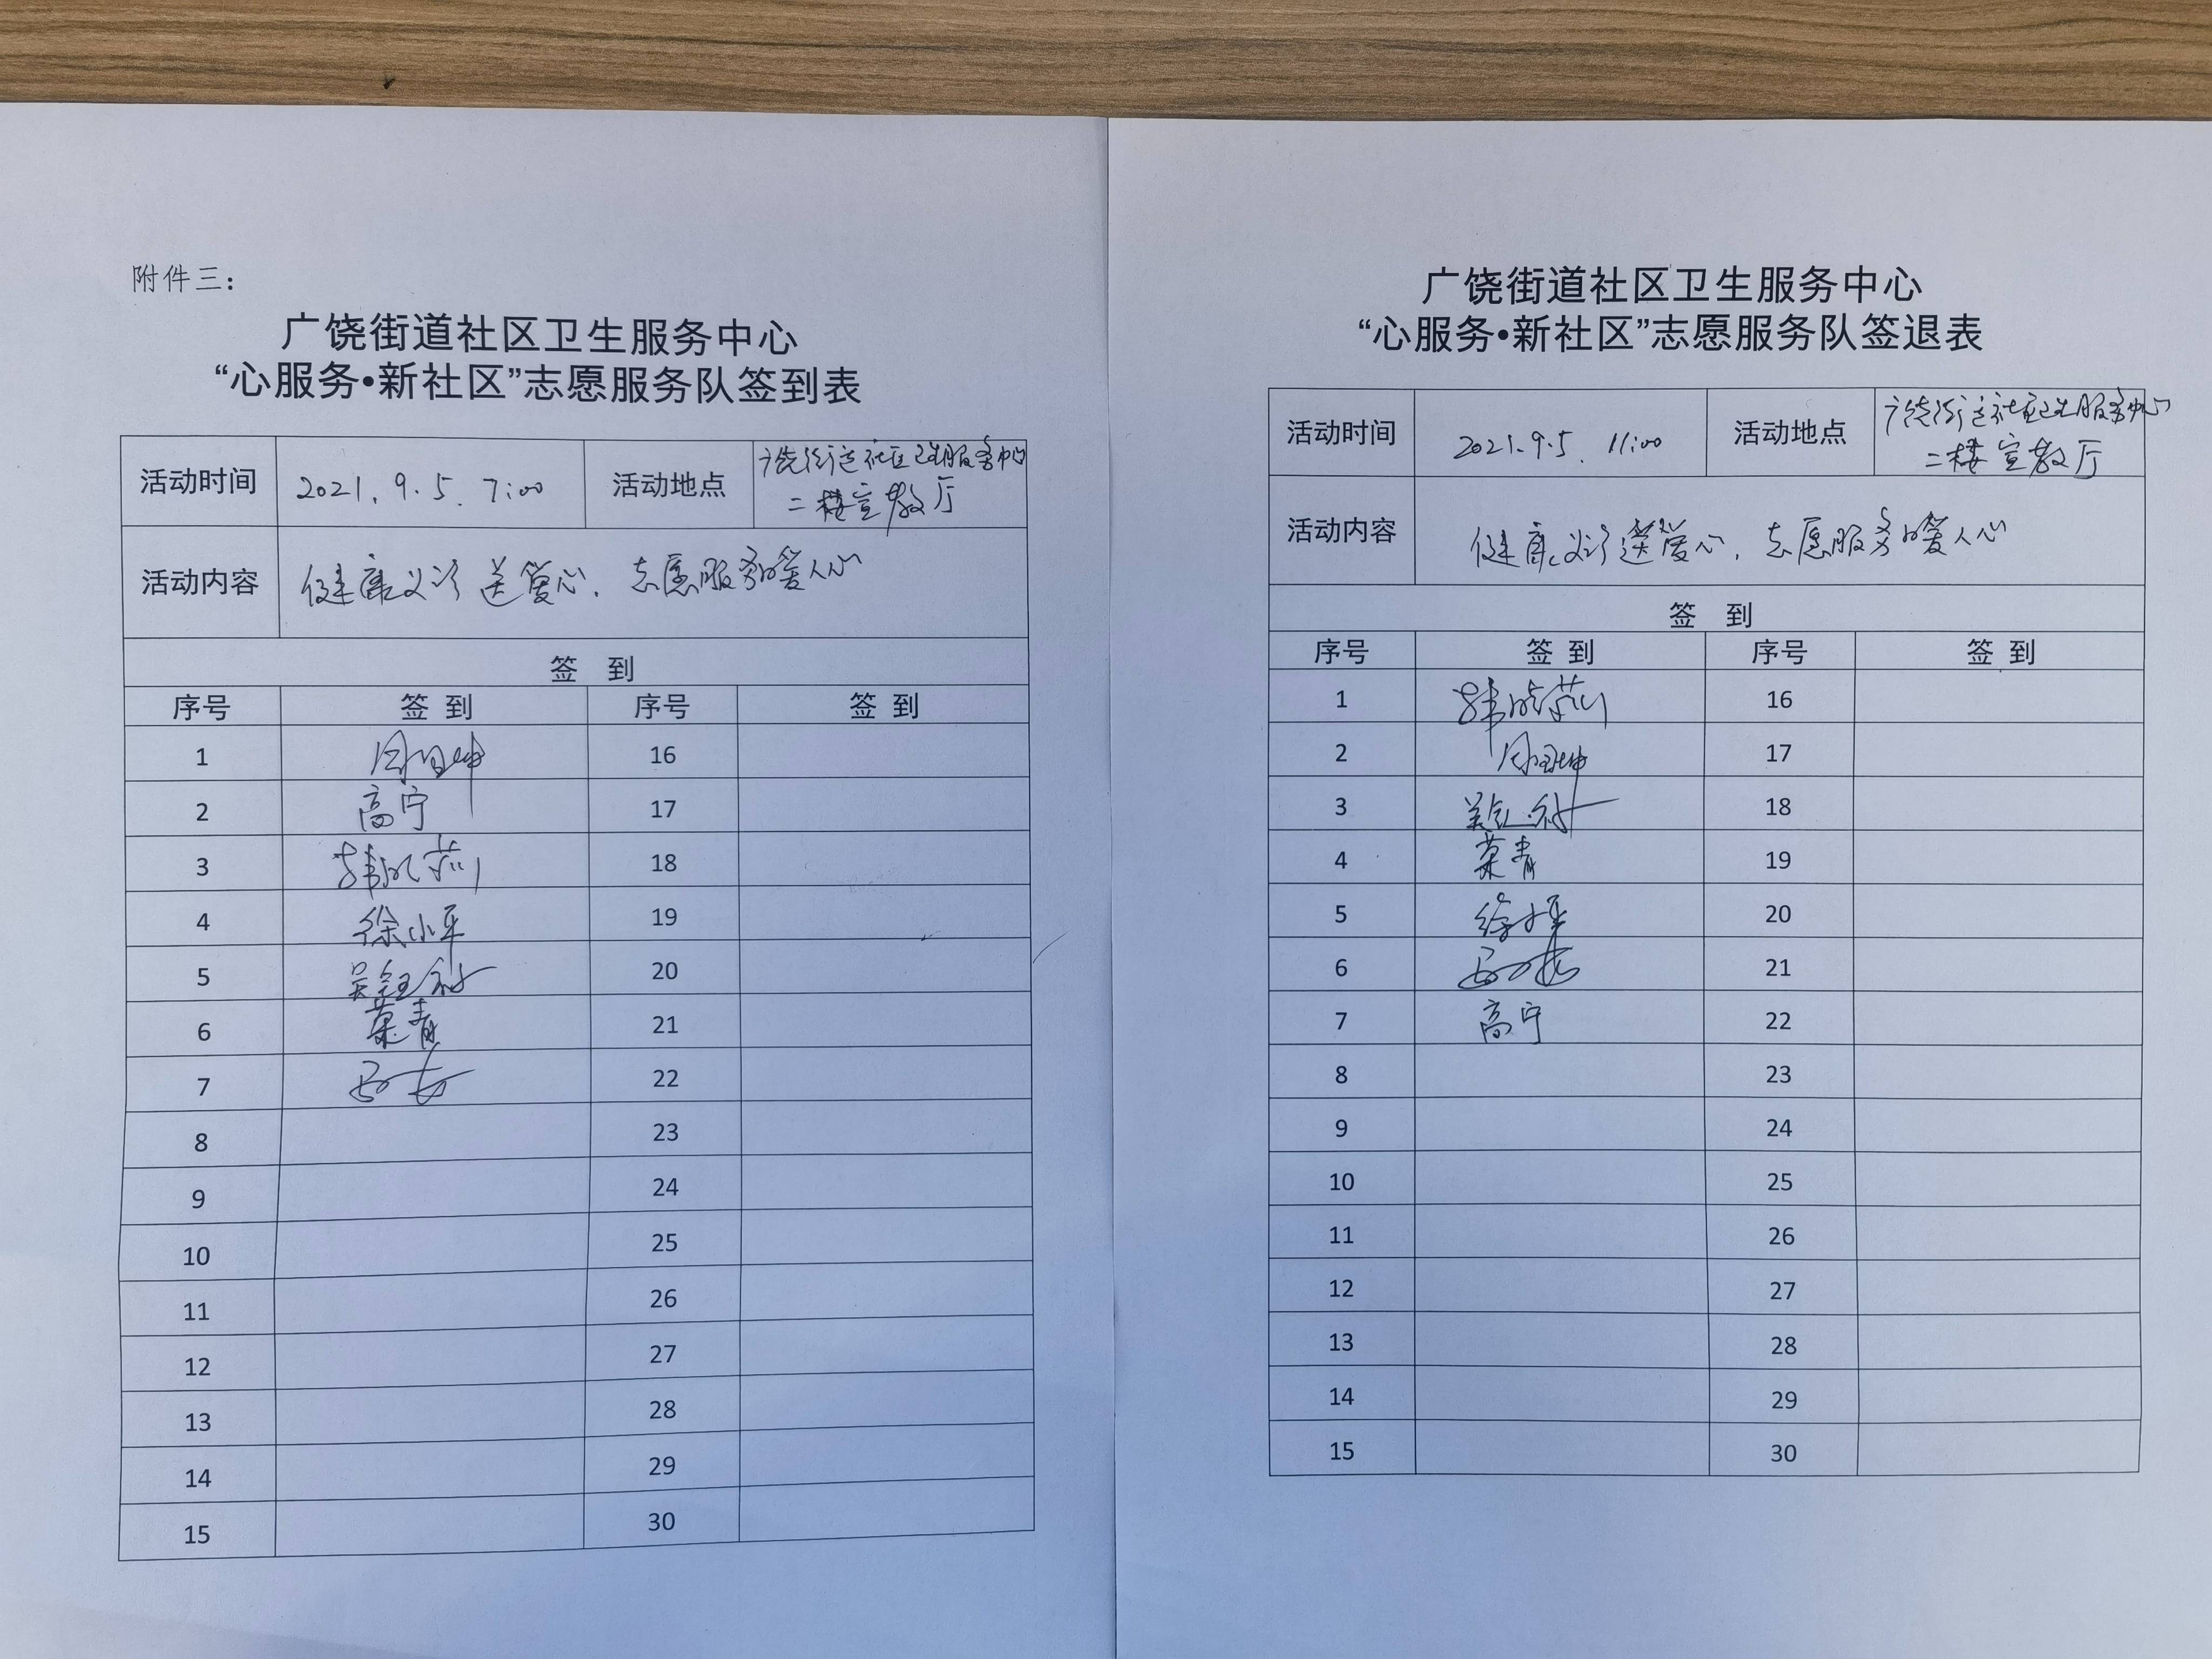 附件三：
广饶街道社区卫生服务中心
“心服务•新社区”志愿服务队签到表
活动时间 2021.9.5. 7:00 活动地点 广饶街道社区卫生服务中心
二楼宣教厅
活动内容 健康义诊送爱心，志愿服务暖人心
签 到
序号 签 到 序号 签 到
1 16
2 高宁 17
3 18
4 徐小平 19
5 20
6 荣青 21
7 22
8 23
9 24
10 25
11 26
12 27
13 28
14 29
15 30
广饶街道社区卫生服务中心
“心服务•新社区”志愿服务队签退表
活动时间 2021.9.5. 11:00 活动地点 广饶街道社区卫生服务中心
二楼宣教厅
活动内容 健康义诊送爱心，志愿服务暖人心
签 到
序号 签 到 序号 签 到
1 16
2 17
3 18
4 荣青 19
5 徐小平 20
6 21
7 高宁 22
8 23
9 24
10 25
11 26
12 27
13 28
14 29
15 30